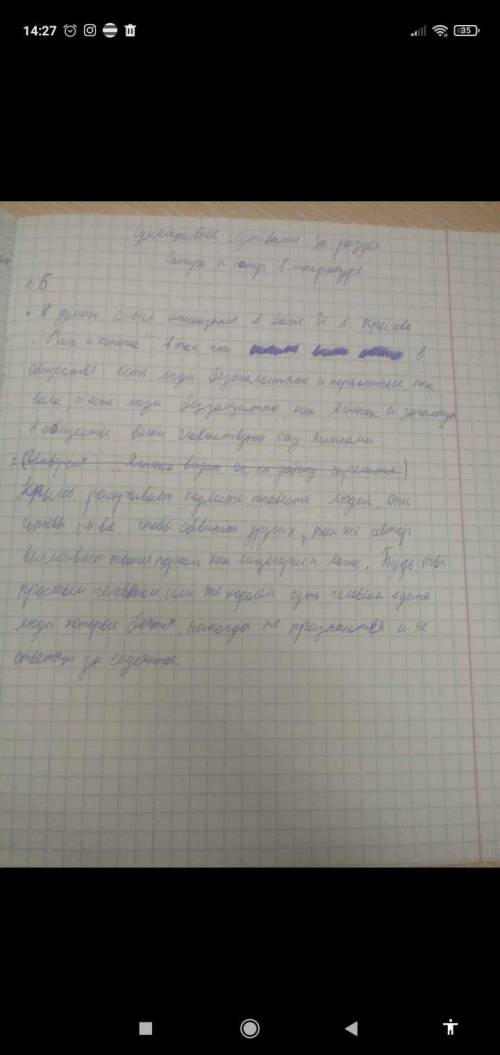 14:27
35
Суммативное оценивание за раздел
Сатира и юмор в литературе
1 Б
Я думаю смысл в басне И. А. Крылова
Волк и ягненок в том что в
обществе есть люди безжалостные и как
волк, и есть люди беззащитны как Ягненок и зачастую
в обществе волки над Ягнятами
2
Крылов подлость людей, они
готовы на все чтобы обвинить других, так же автор
высмеивает такие пороки как лицемерие и ложь. Будь ты
простым человеком или же королем суть человека едина
люди которые боятся, никогда не признаются и не
ответят за содеянное